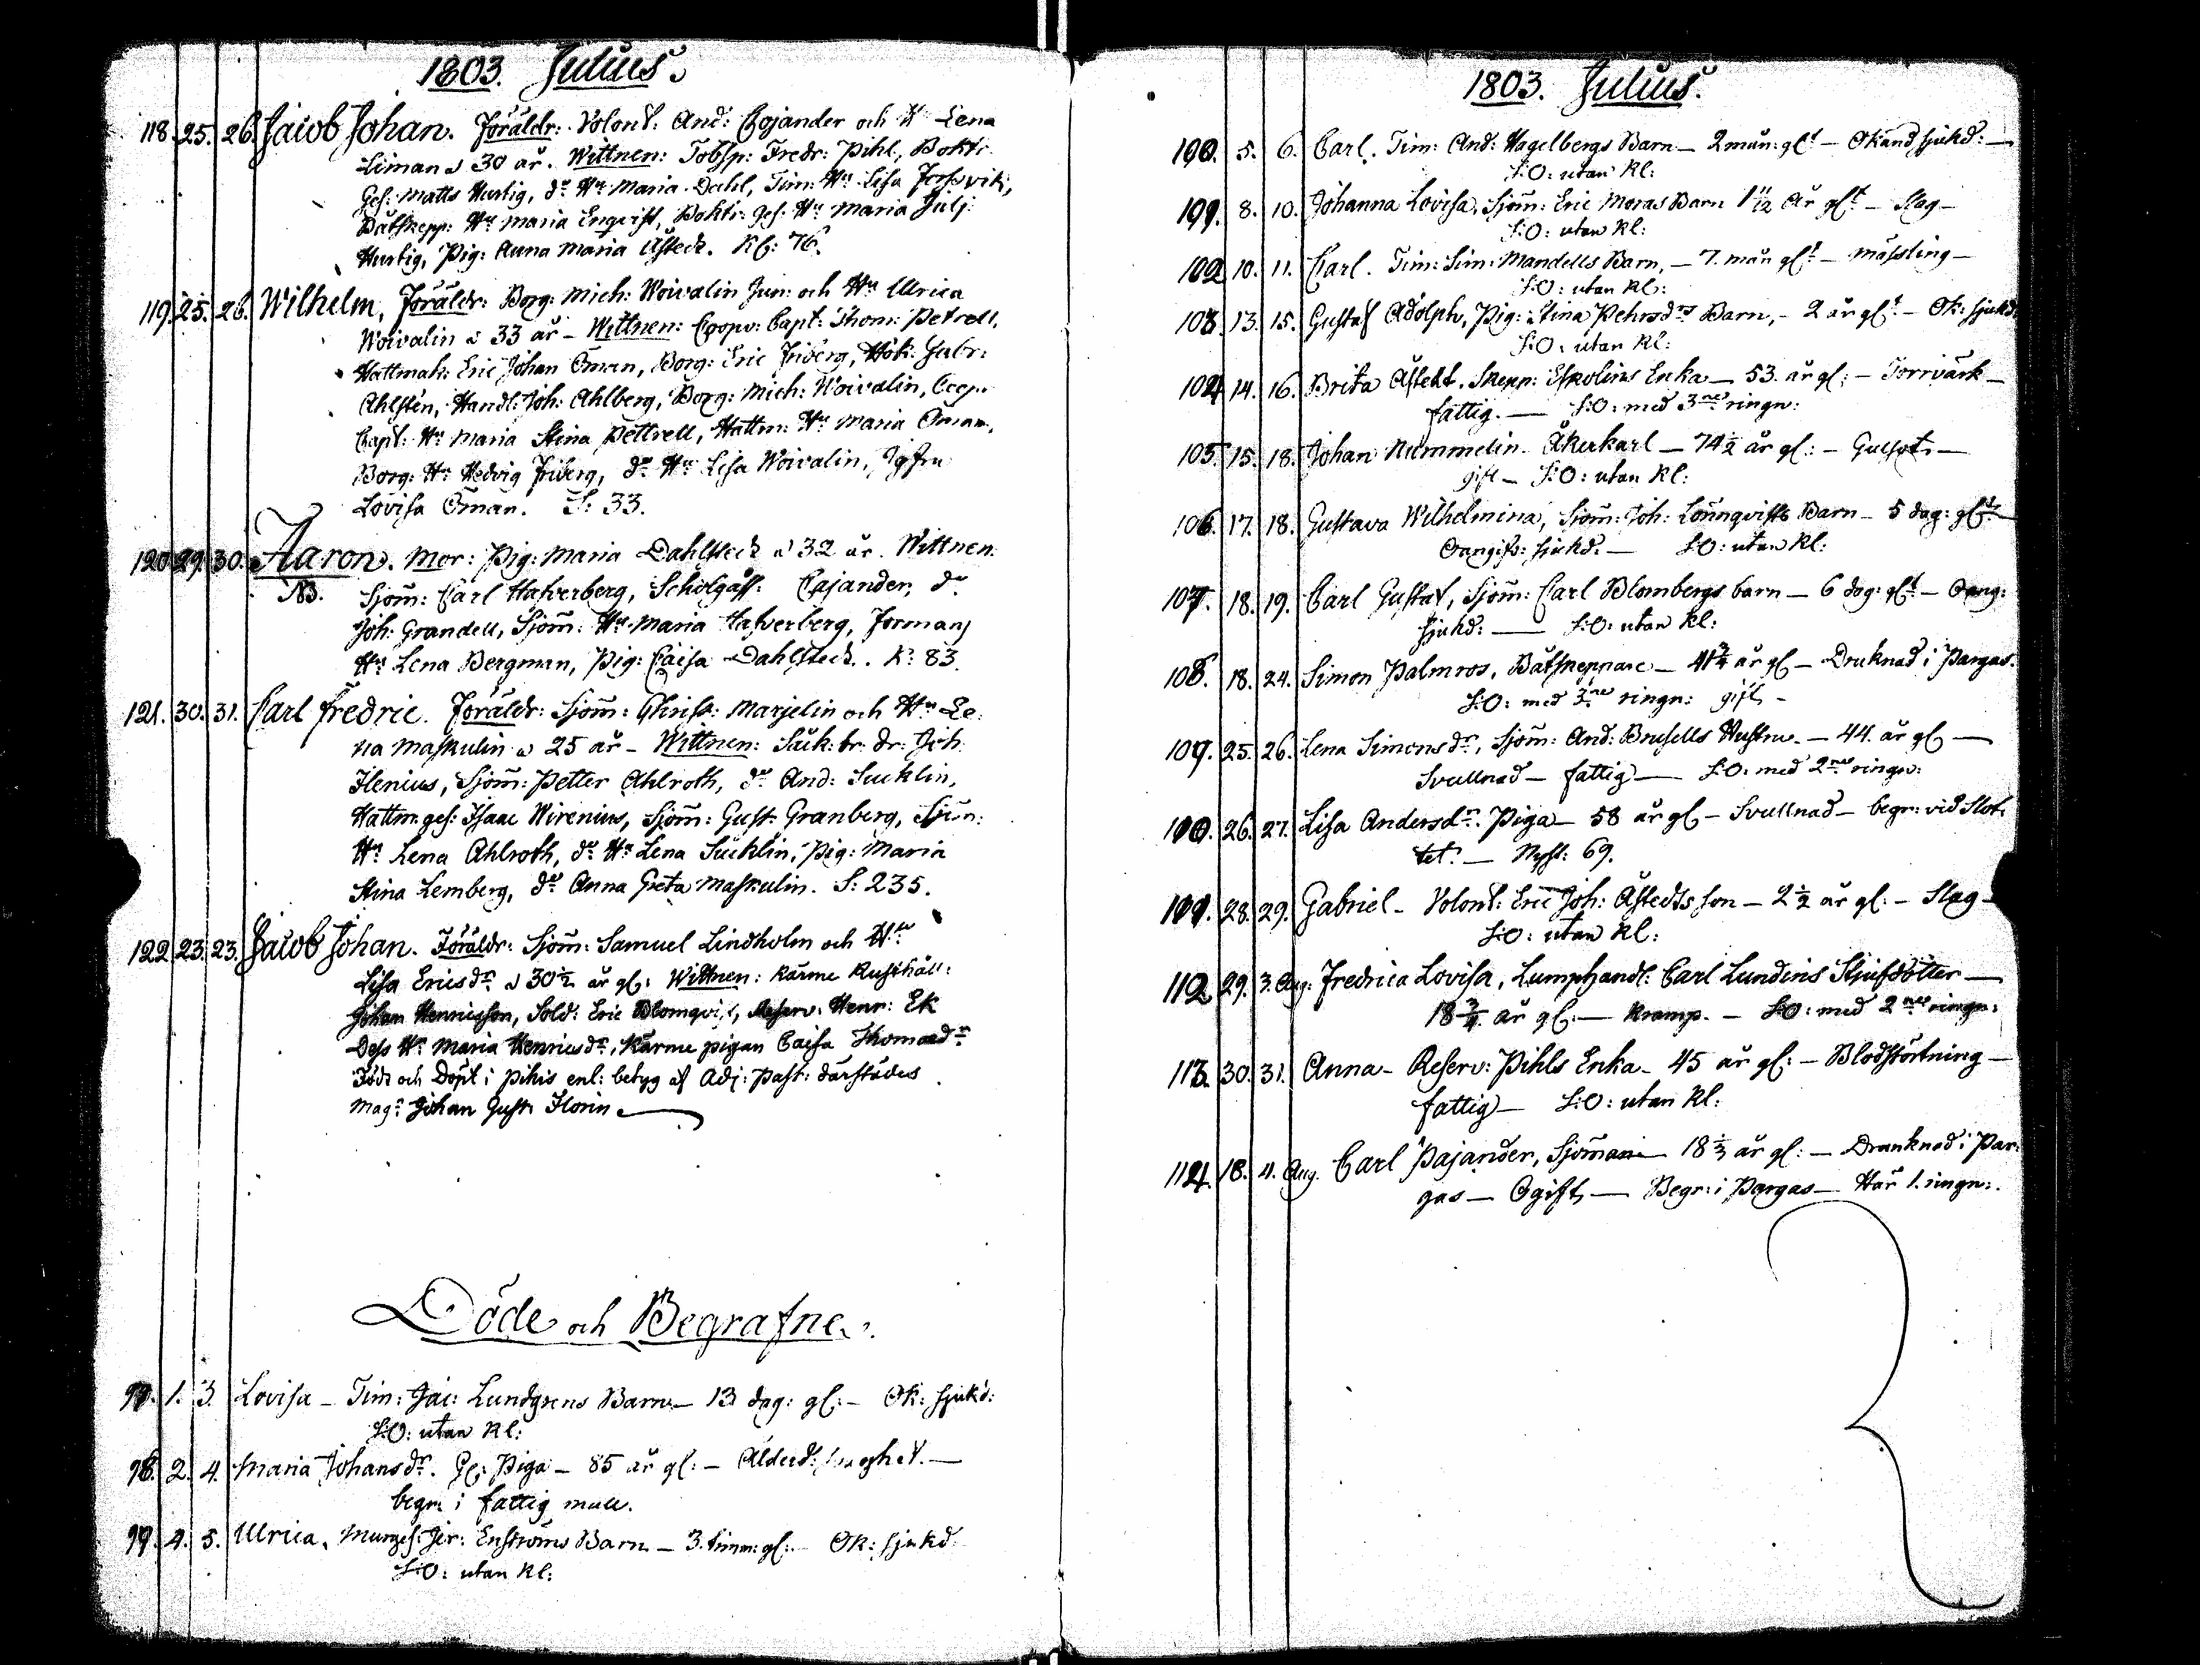 1803. Julius.
118. 25. 26. Jacob Johan. Föräldr: Volont: And: Cojander och H. Lena
Liman a 30 år. Wittnen: Tobsp: Fredr: Pihl, Boktr:
Ges: Matts Hurtig, do Hu Maria Dahl, Tim: Hu Lisa
Båtskepp: Hu Maria Enqvist, Boktr: Ges: Hu Maria Julj:
Hurtig, Pig: Anna Maria Åstedt. Kl: 76.
119. 25. 26. Wilhelm, Föräldr: Borg: Mich: Woivalin Jun: och Hu Ulrica
Woivalin a 33 år – Wittnen: Coopv: Capt: Thom: Petrell,
Hattmak: Eric Johan Öman, Borg: Eric Friberg, Hök: Gabr:
Ahlstén, Handl: Joh: Ahlberg, Borg: Mich: Woivalin, Coop:
Capt: Hu Maria Stina Pettrell, Hattm: Hu Maria Öman,
Borg: Hu Hedvig Friberg, do Hu Lisa Woivalin, Jgfru
Lovisa Öman. S: 33.
120. 29. 30. Aaron. Mor: Pig: Maria Dahlsteck a 32 år. Wittnen:
NB. Sjöm: Carl Hafverberg, Scholgåss: Cajander, do
Joh: Grandell, Sjöm: Hu Maria Hafverberg, Formans
Hu Lena Bergman, Pig: Caisa Dahlsteck. K: 83.
121. 30. 31. Carl Fredric. Föräldr: Sjöm: Christ: Marjelin och Hu Le-
na Maskulin a 25 år – Wittnen: Säck: br: dr: Joh:
Ilenius, Sjöm: Petter Ahlroth, do And: Sucklin,
Hattm: ges: Isaac Wirenius, Sjöm: Gust: Granberg, Sjöm:
Hu Lena Ahlroth, do Hu Lena Sucklin, Pig: Maria
Stina Lemberg, do Anna Greta Maskulin. S: 235.
122. 23. 23. Jacob Johan. Föräldr: Sjöm: Samuel Lindholm och Hu
Lisa Ericsdr a 30½ år gl: Wittnen: Karme Rusthåll:
Johan Henricsson, Sold: Eric Blomqvist, Reserv: Henr: Ek
Dess Hu Maria Henricsdr, Karme pigan Caisa Thomasdr
Född och Döpt i Pikis enl: betyg af Adj: Past: därstädes
Magr Johan Gust: Florin
Döde och Begrafne.
97. 1. 3. Lovisa – Tim: Jac: Lundgrens Barn – 13 dag: gl: – Ok: sjukd:
S:O: utan kl:
98. 2. 4. Maria Johansdr. Gl: Piga – 85 år gl: – Ålderd:
begr: i fattig mull.
99. 4. 5. Ulrica, Murges: Jer: Enströms Barn – 3. timm: gl: – Ok: sjukd
S:O: utan kl:
1803. Julius.
100. 5. 6. Carl. Tim: And: Hagelbergs Barn – 2 mån: glt – Okänd sjukd: –
S:O: utan kl:
101. 8. 10. Johanna Lovisa, Sjöm: Eric Moras Barn 1 11/12 år glt – Slag –
S:O: utan kl:
102. 10. 11. Carl. Tim: Sim: Mandells Barn, – 7. mån glt – mässling –
S:O: utan kl:
103. 13. 15. Gustaf Adolph, Pig: Stina Pehrsdrs Barn, – 2 år glt – Ok: sjukd:
S:O: utan kl:
104. 14. 16. Brita Åstedt. Skepp: Eskolins Enka – 53. år gl: – Torrvärk –
fattig. – S:O: med 3ne ringn:
105. 15. 18. Johan Nummelin. Åkerkarl – 74½ år gl: – Gulsot –
gift – S:O: utan kl:
106. 17. 18. Gustava Wilhelmina, Sjöm: Joh: Lönnqvists Barn – 5 dag: glt –
Oangifs: sjukd: – S:O: utan kl:
107. 18. 19. Carl Gustaf, Sjöm: Carl Blombergs barn – 6 dag: glt – Oang:
sjukd: – S:O: utan kl:
108. 18. 24. Simon Palmros, Båtskeppare – 41¾ år gl – Druknad i Pargas.
S:O: med 3ne ringn: gift –
109. 25. 26. Lena Simonsdr, Sjöm: And: Brusells Hustru – 44. år gl –
Svullnad – fattig – S:O: med 2ne ringn:
110. 26. 27. Lisa Andersdr. Piga – 58 år gl – Svullnad – begr: vid Slot-
tet. – Nyst: 69.
111. 28. 29. Gabriel – Volont: Eric Joh: Åstedts son – 2½ år gl: – Slag –
S:O: utan kl:
112. 29. 3. Aug: Fredrica Lovisa, Lumphandl: Carl Lundins Stjufdotter –
18¾ år gl: – Kramp. – S:O: med 2ne ringn:
113. 30. 31. Anna – Reserv: Pihls Enka – 45 år gl: – Blodstörtning –
fattig – S:O: utan kl:
114. 18. 4. Aug. Carl Pajander, Sjöman – 18⅓ år gl: – Drunknad i Par-
gas – Ogift – Begr: i Pargas – Här 1. ringn: